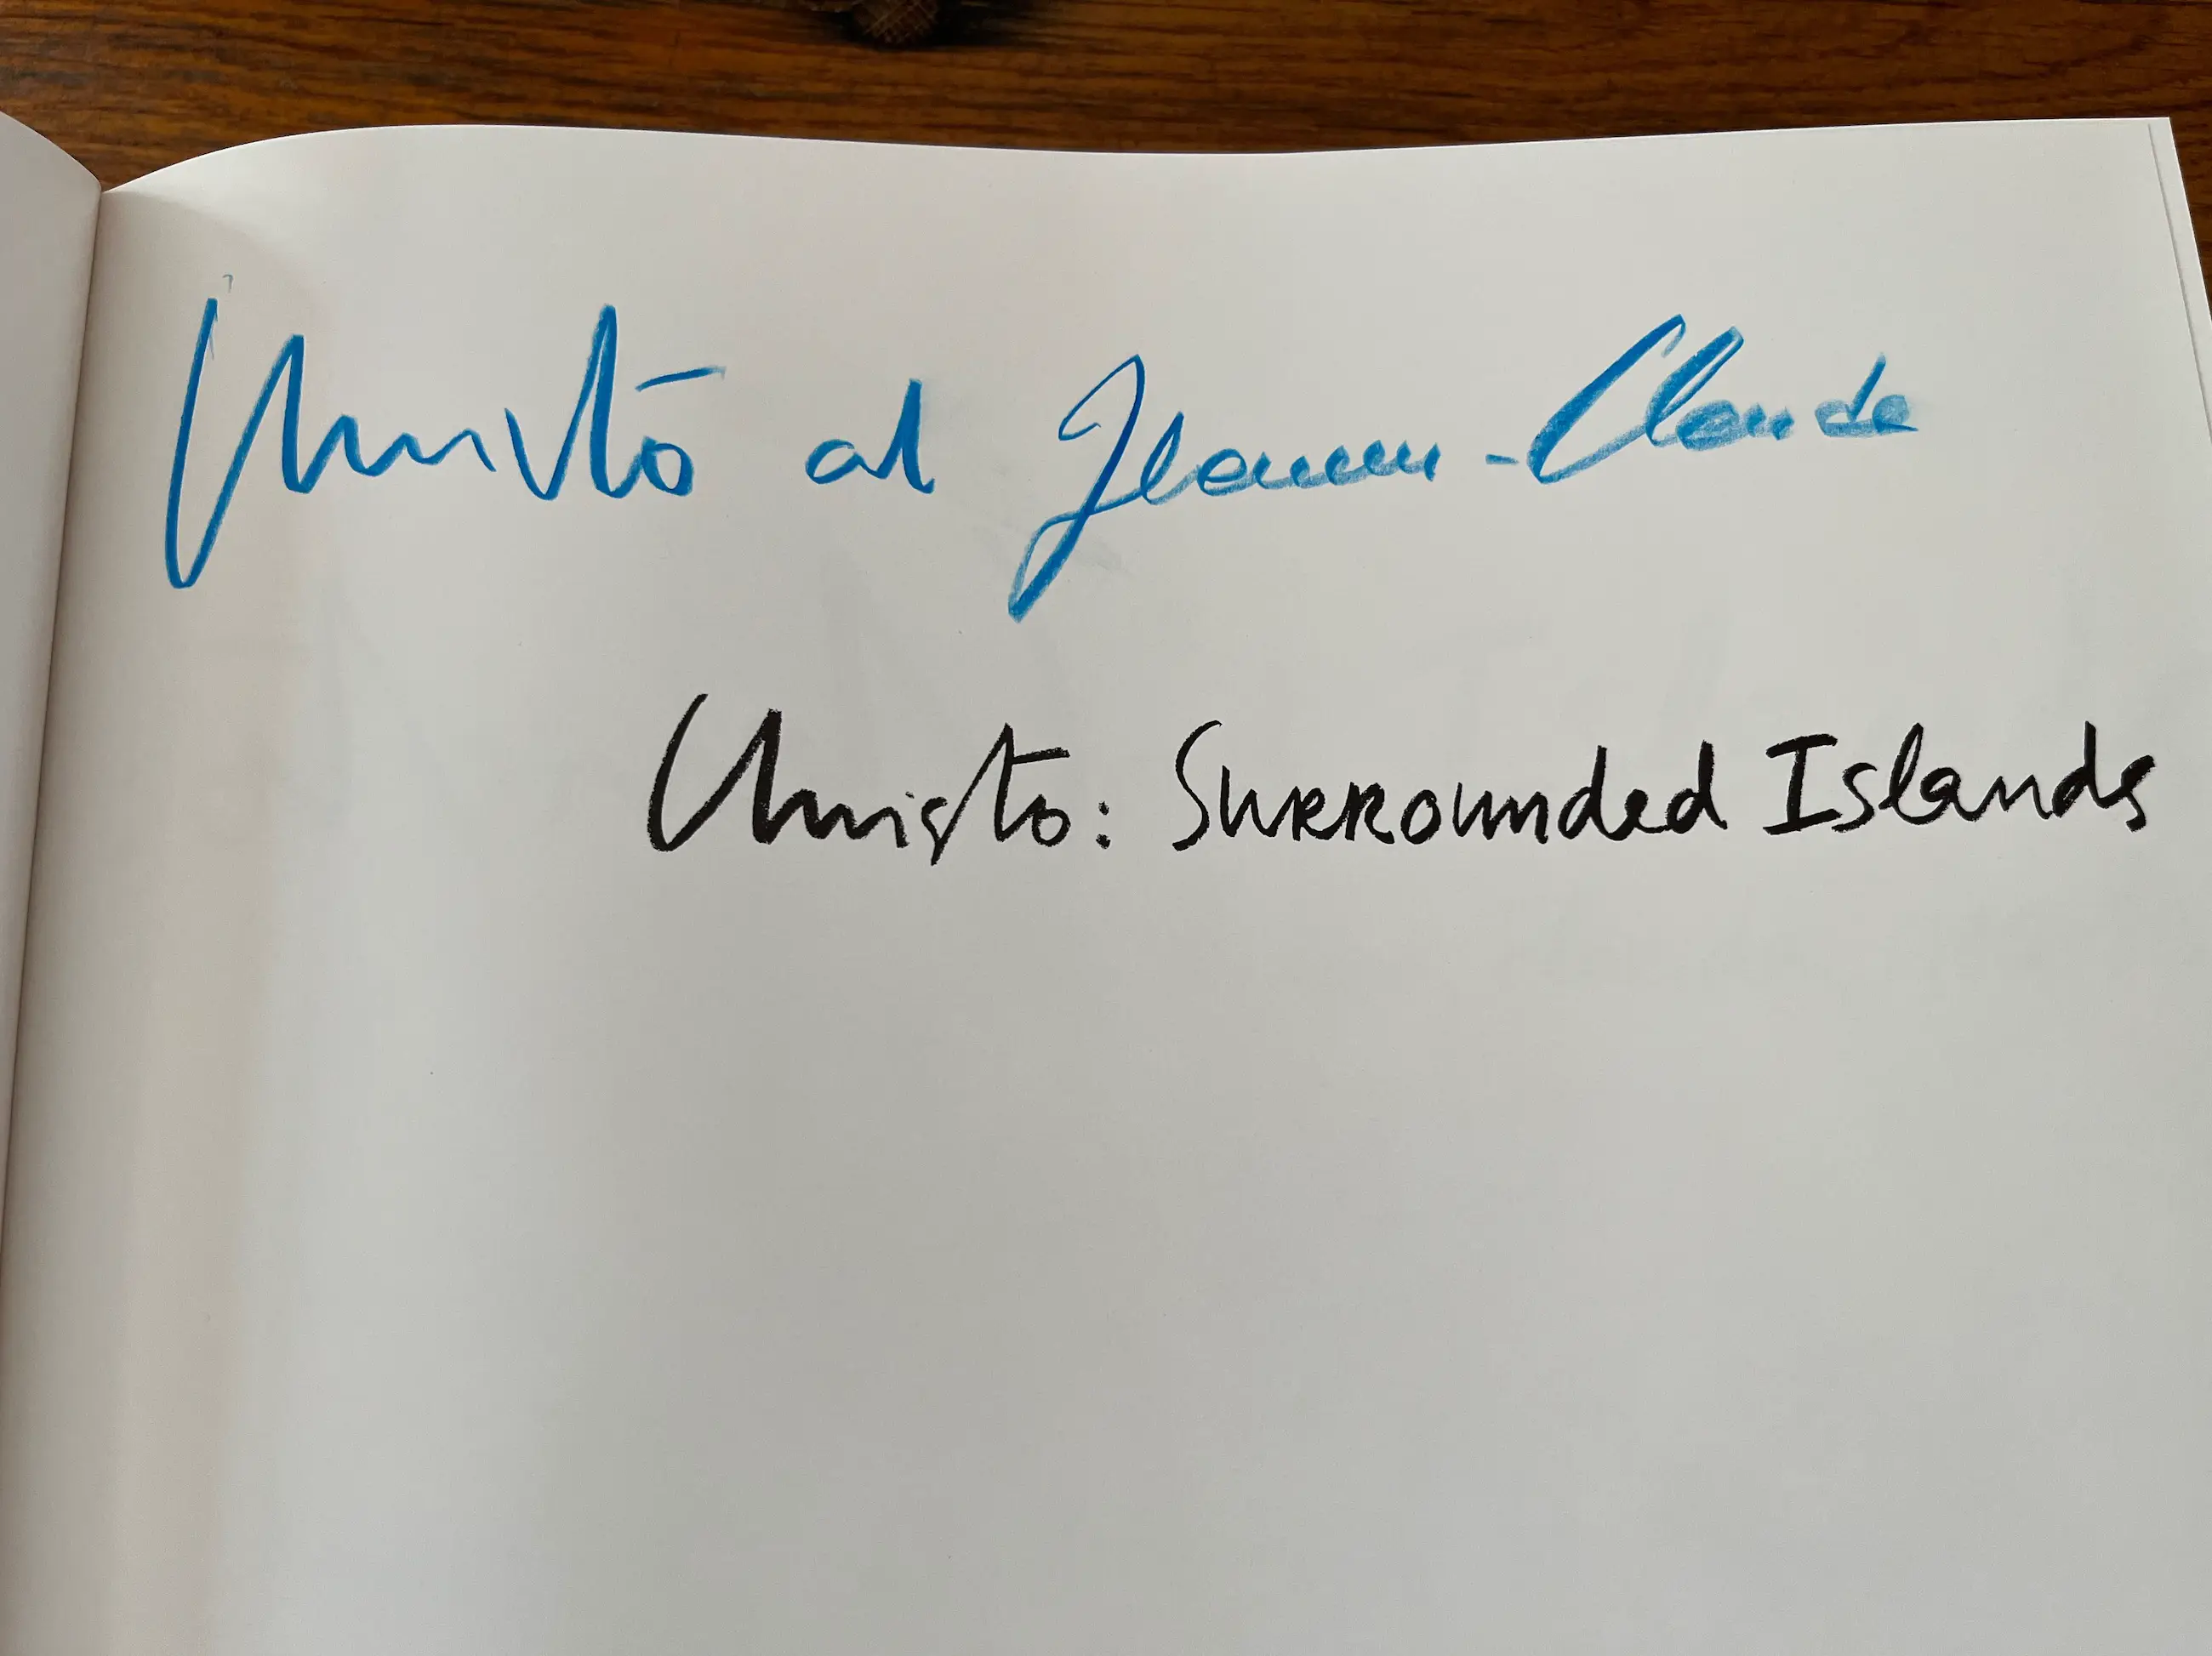 Christo al Jeanne-Claude
Christo: Surrounded Islands